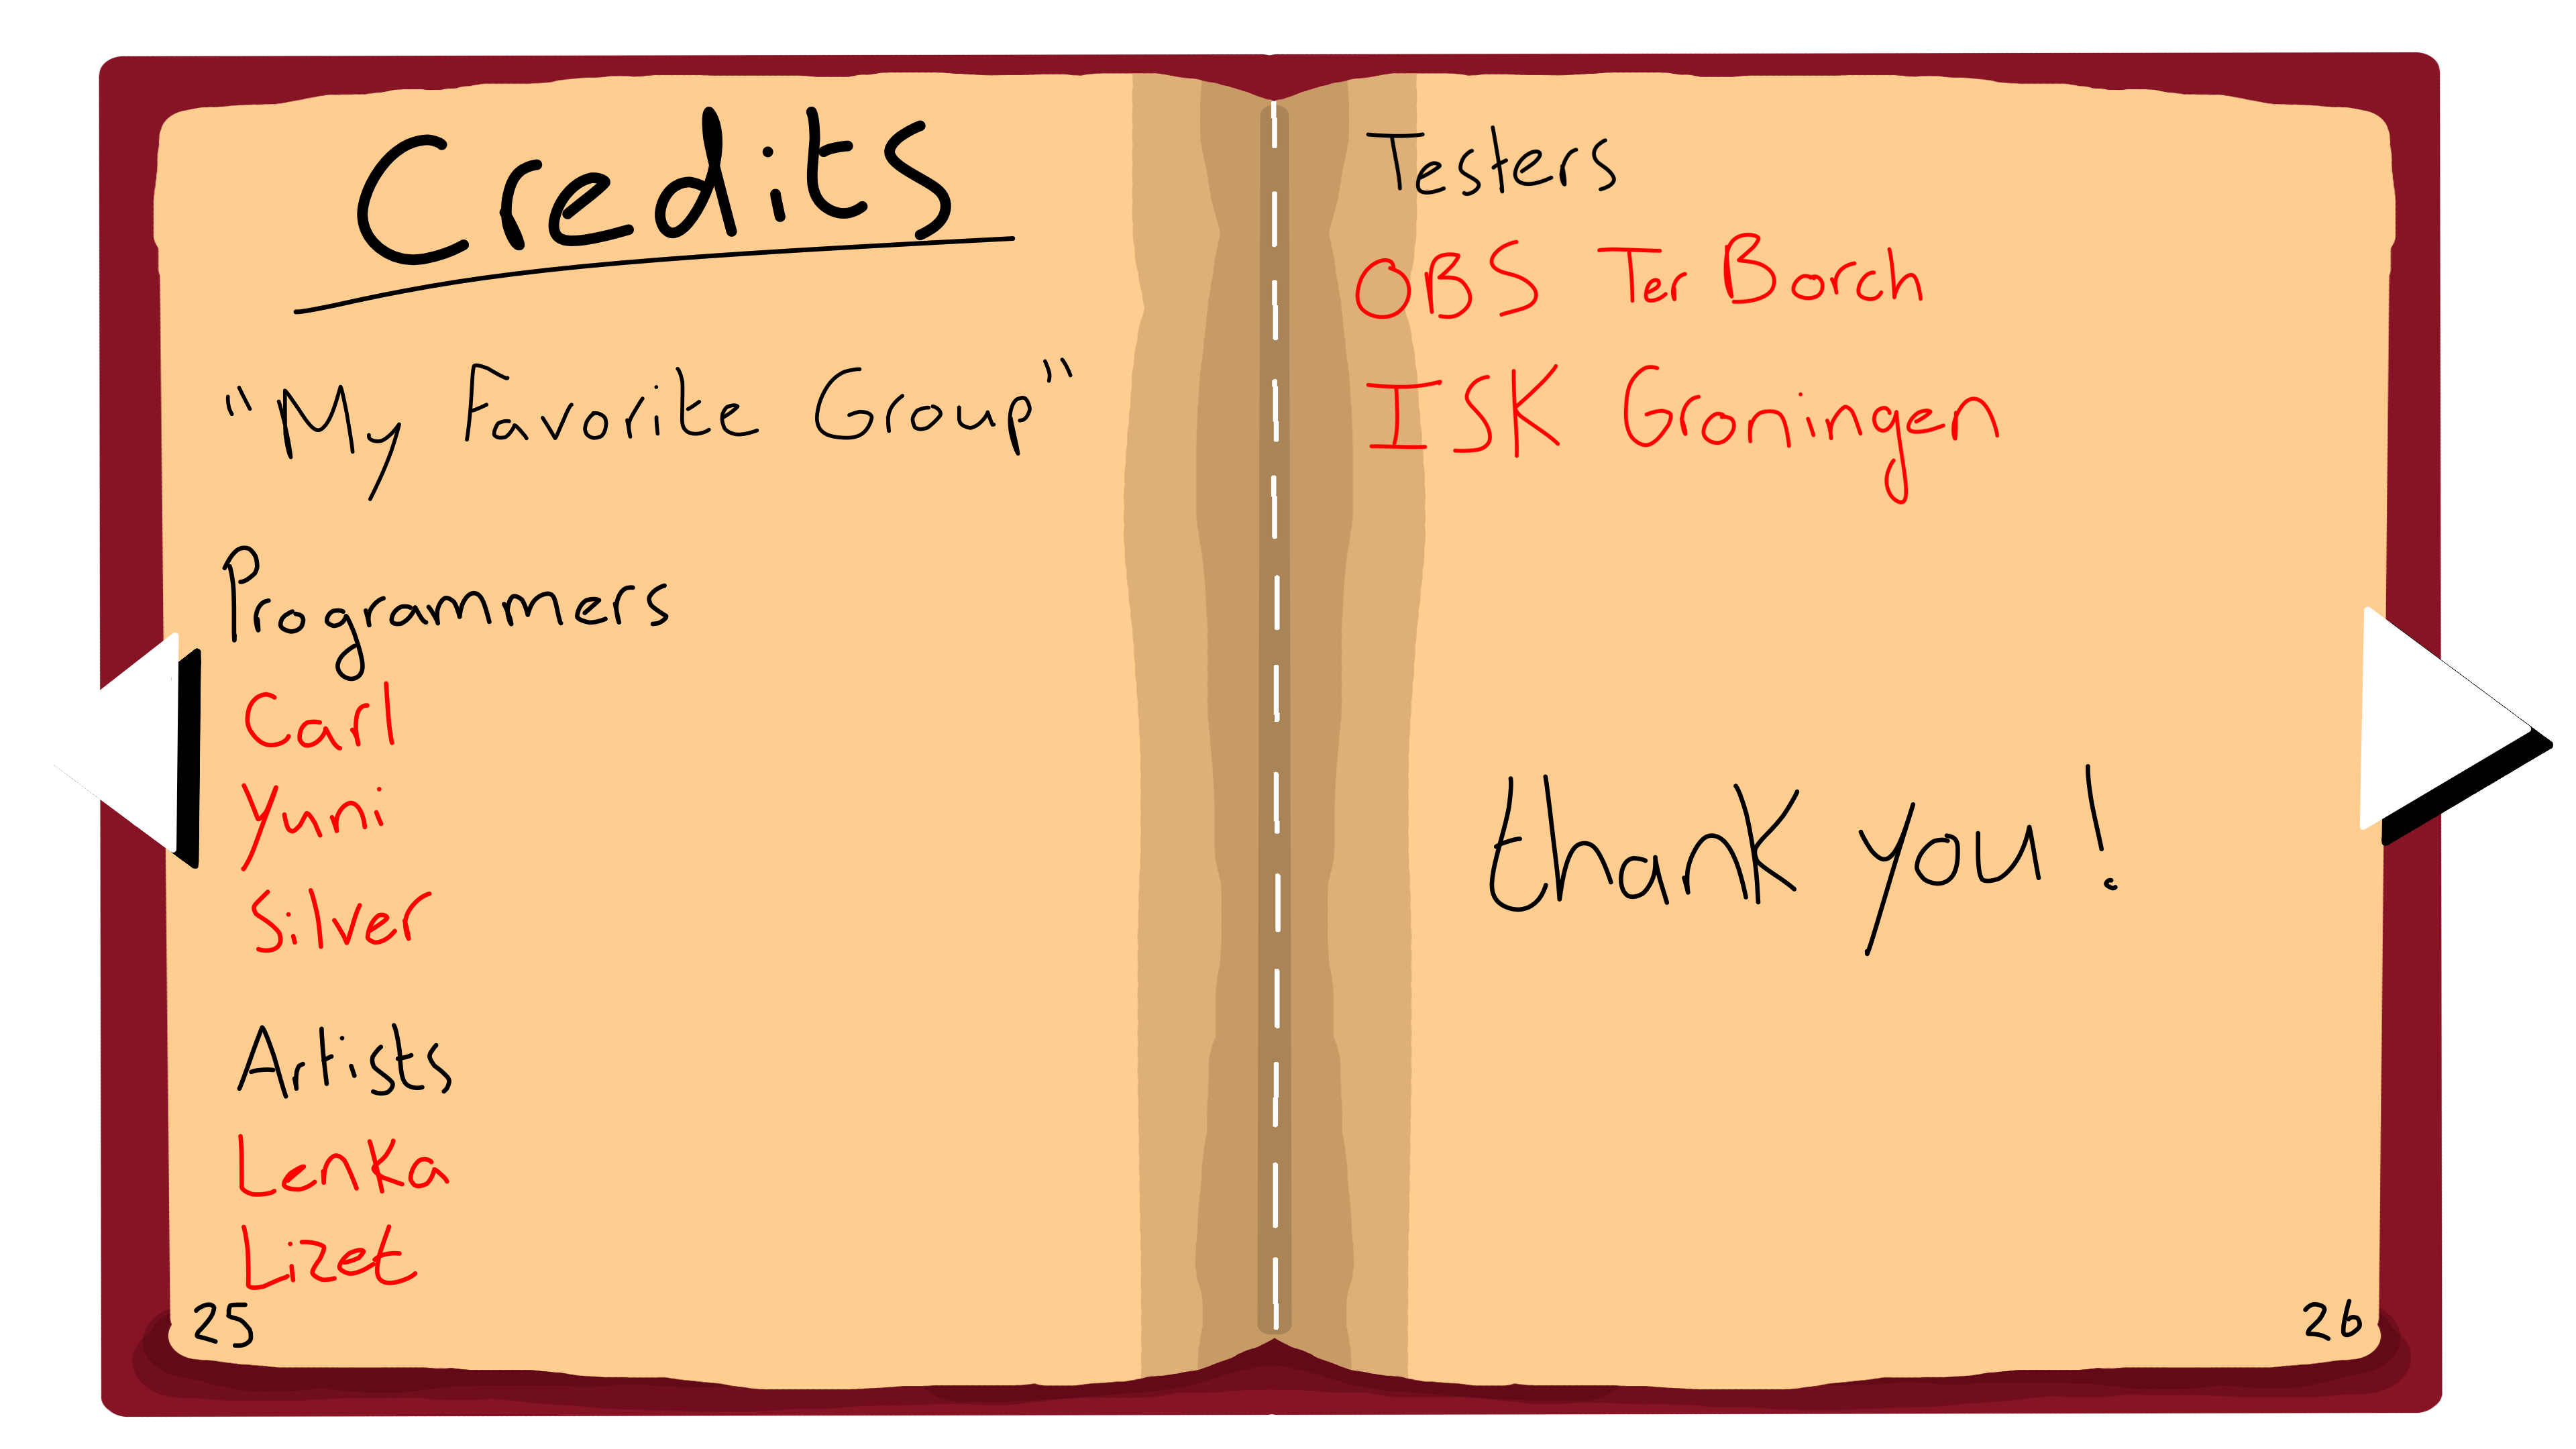 Credits
"My Favorite Group"
Programmers
Carl
Yuni
Silver
Artists
Lenka
Lizet
25
Testers
OBS Ter Borch
ISK Groningen
thank you!
26